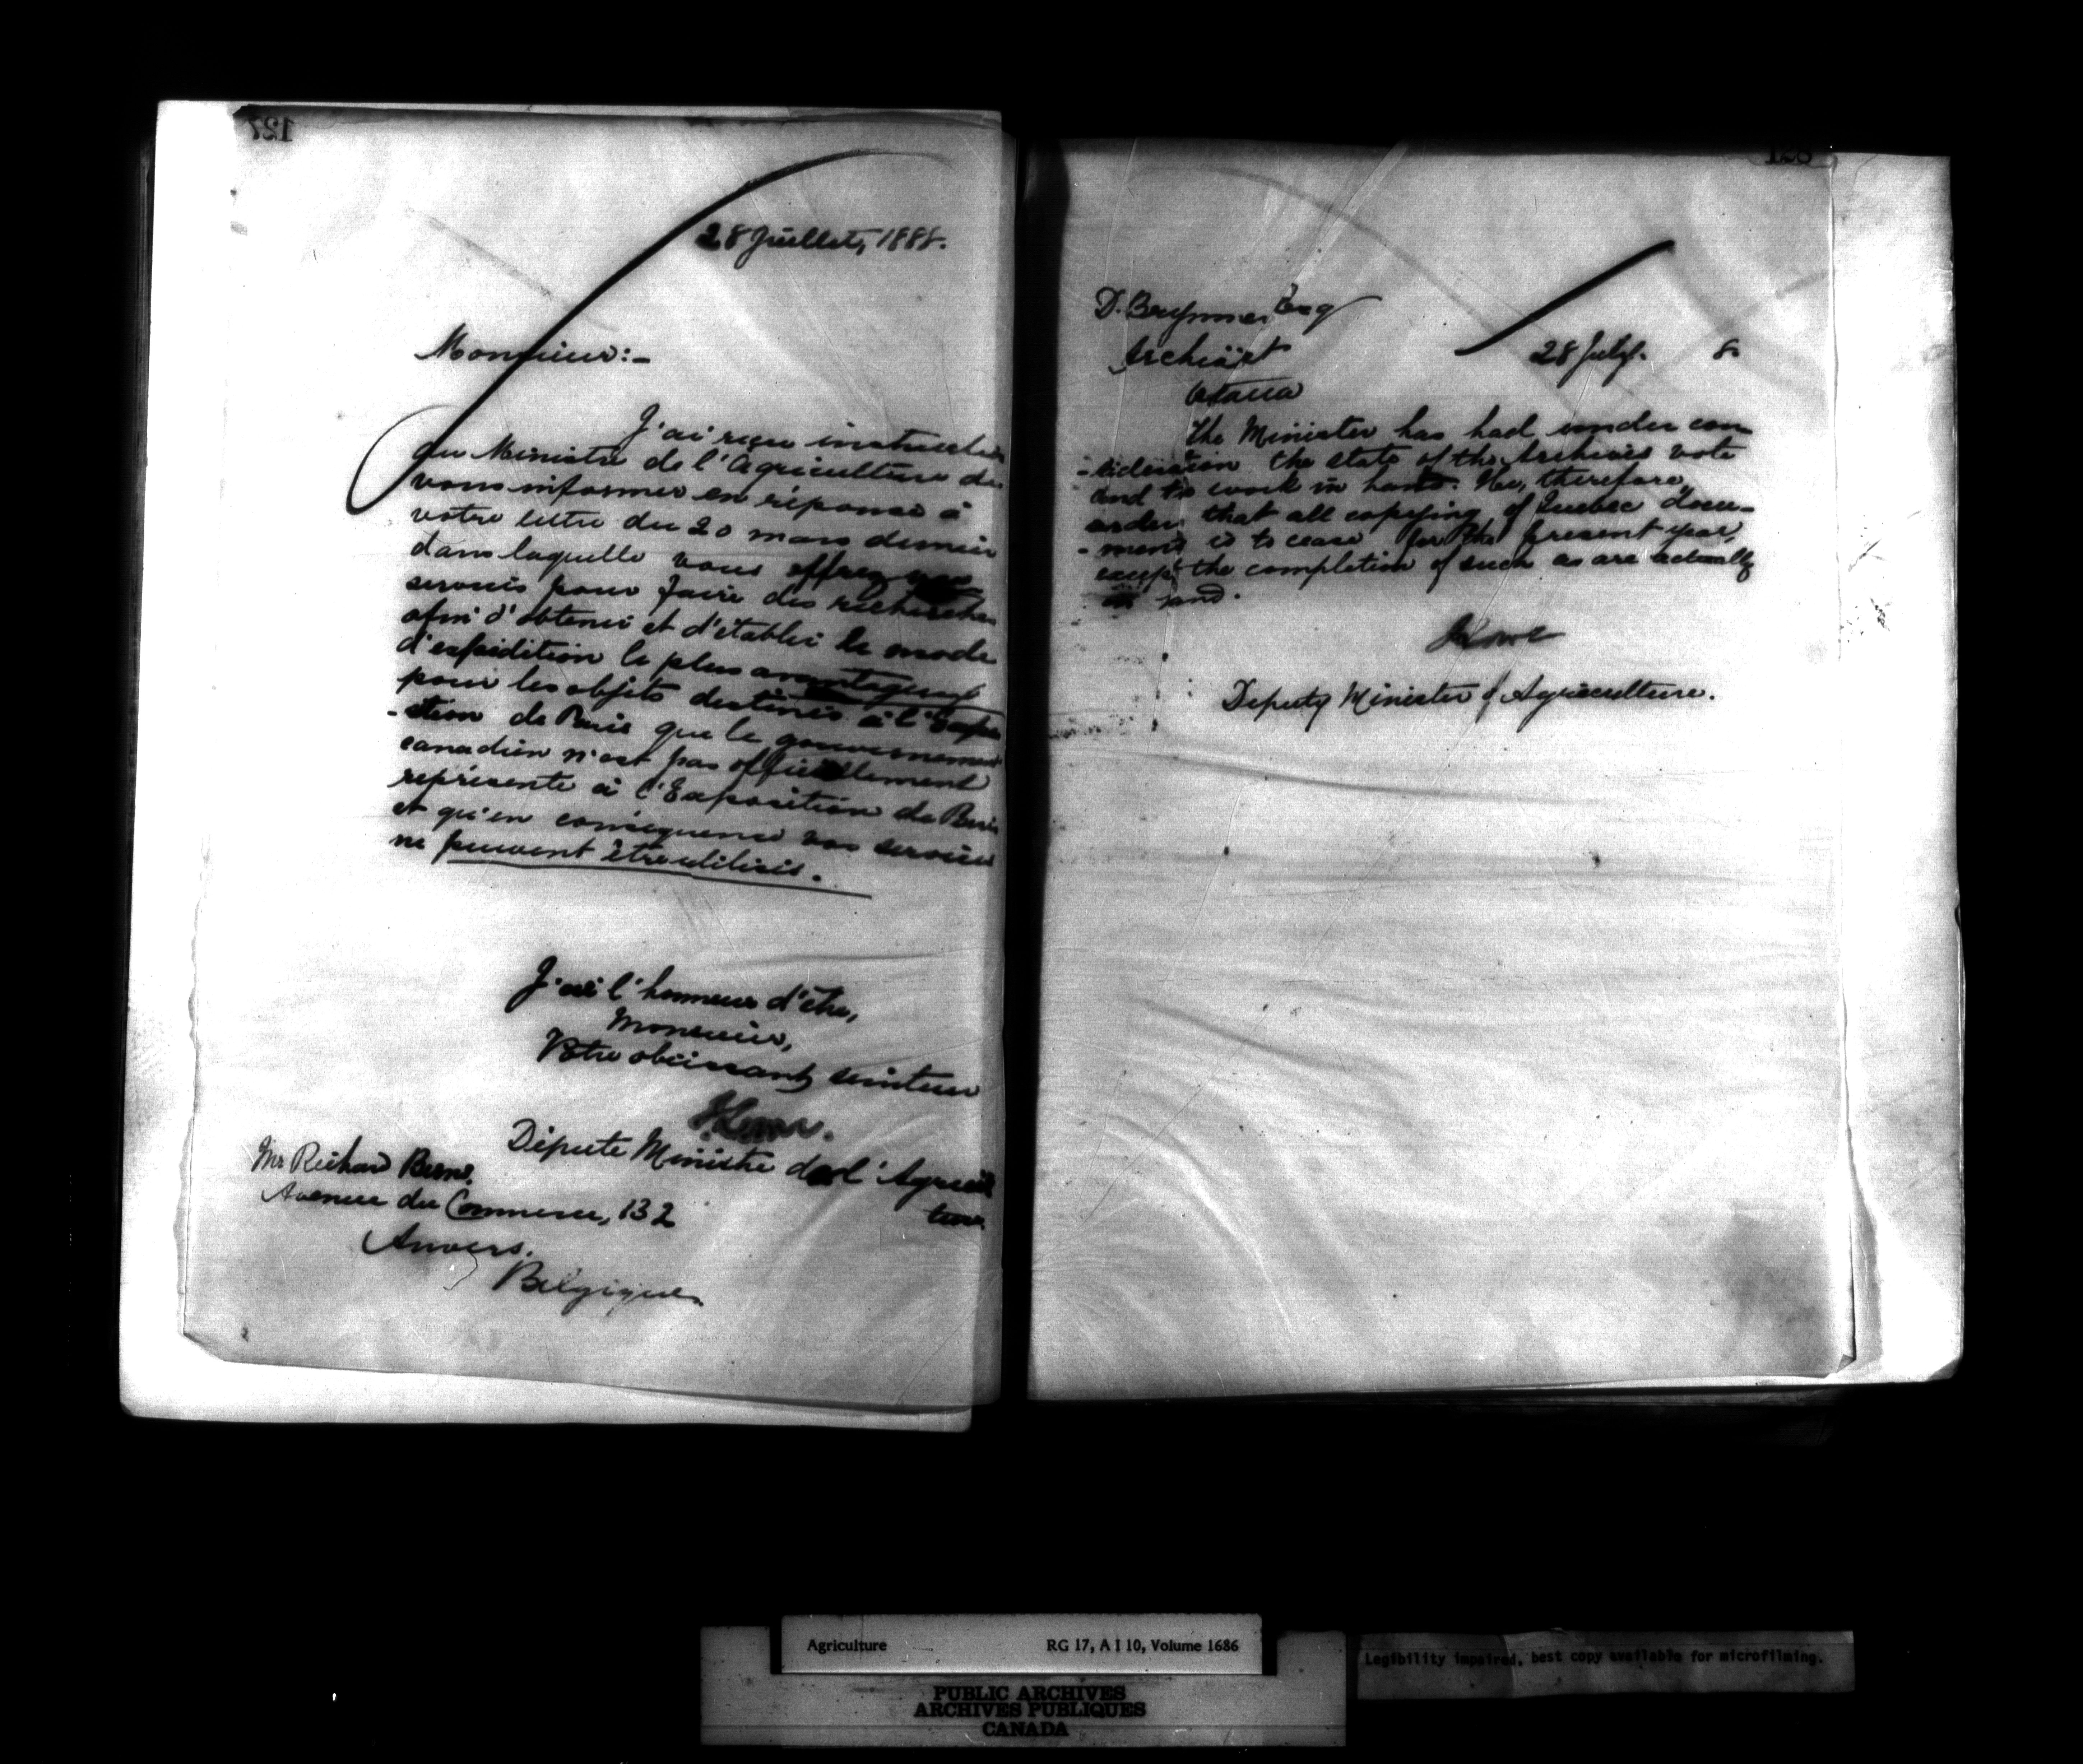 127
28 Juillet, 1888.
Monsieur:-
J'ai reçu instruction
du Ministre de l'Agriculture de
vous informer en réponse à
votre lettre du 20 mars dernier
dans laquelle vous offrez
services pour faire des recherches
afin d'obtenir et d'établir le mode
d'expédition le plus avantageux
pour les objets destinés à l'Expo
-sition de Paris que le gouvernement
canadien n'est pas officiellement
représenté à l'Exposition de Paris
et qu'en conséquence vos services
ne peuvent être utilisés.
J'ai l'honneur d'être,
Monsieur,
Votre obéissant serviteur
Député Ministre de l'Agricul
ture.
Mr Richard
Avenue du Commerce, 132
Anvers.
Belgique
128
D. Brymner Esq
Archivist
Ottawa
28 July. 8
The Minister has had under con-
-sideration the state of the Archives vote
and the work in hand. He, therefore,
orders that all copying of Quebec docu-
-ments is to cease for the present year,
except the completion of such as are actually
in hand.
Deputy Minister of Agriculture.
Agriculture RG 17, A I 10, Volume 1686
Legibility impaired, best copy available for microfilming.
PUBLIC ARCHIVES
ARCHIVES PUBLIQUES
CANADA